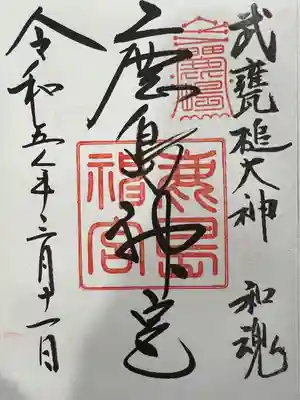 武甕槌大神 和魂
鹿島神宮
鹿島神宮
令和五年二月十一日